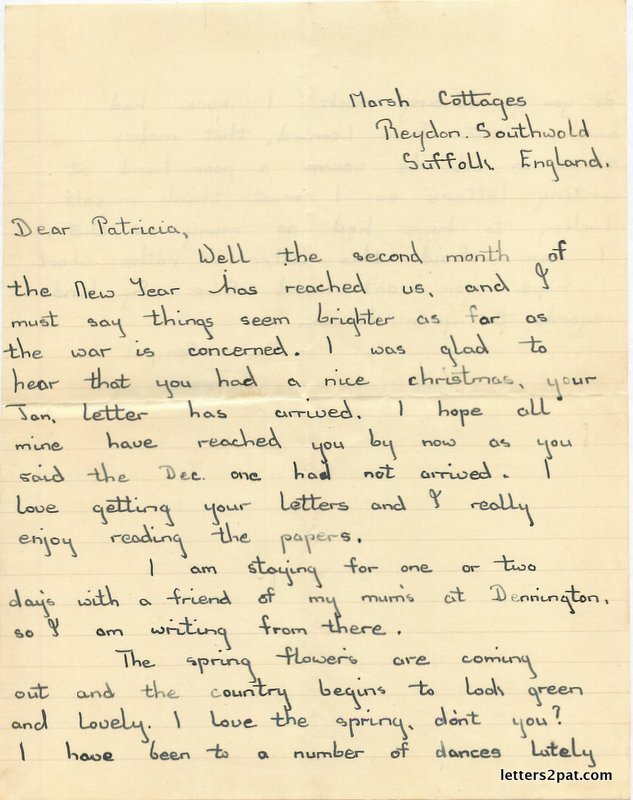 Marsh Cottages
Reydon. Southwold
Suffolk England.
Dear Patricia,
Well the second month of
the New Year has reached us, and I
must say things seem brighter as far as
the war is concerned. I was glad to
hear that you had a nice christmas, your
Jan, letter has arrived. I hope all
mine have reached you by now as you
said the Dec. one had not arrived. I
love getting your letters and I really
enjoy reading the papers.
I am staying for one or two
days with a friend of my mum's at Dennington,
so I am writing from there.
The spring flowers are coming
out and the country begins to look green
and lovely. I love the spring, don't you?
I have been to a number of dances lately
letters2pat.com